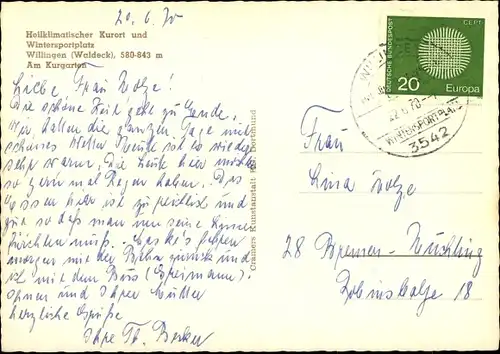 20.6.70
Heilklimatischer Kurort und
Wintersportplatz
Willingen (Waldeck), 580-843 m
Am Kurgarten
Liebe Frau Bolze!
Die schöne Zeit geht zu Ende,
Wir hatten die ganzen Tage nur
schönes Wetter Heute ist es wieder
sehr warm. Die Leute hier möchten
so gern mal Regen haben. Das
Essen hier ist zu reichlich und
gut so daß man um seine Linie
fürchten muß. fahren
morgen mit der Bahn zurück und
ich mit dem Bus
Ihnen und Ihrer Mutter
herzliche Grüße
Ihre Th. Becker
Cramers Kunstanstalt KG, Dortmund
DEUTSCHE BUNDESPOST
CEPT
20
Europa
WINTERSPORTPLATZ
3542
Frau
Lina Bolze
28 Bremen-Huchting
18